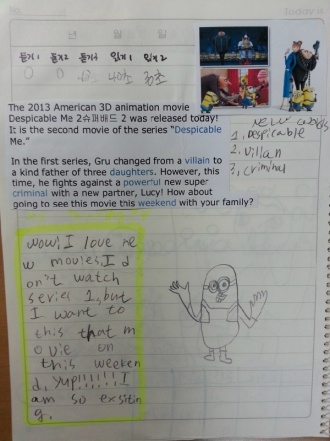 Today is
년 월 일
듣기1 듣기2 듣기3 읽기1 읽기2
0 0 40초 30초
The 2013 American 3D animation movie
Despicable Me 2슈퍼배드 2 was released today!
It is the second movie of the series “Despicable
Me.”
In the first series, Gru changed from a villain to
a kind father of three daughters. However, this
time, he fights against a powerful new super
criminal with a new partner, Lucy! How about
going to see this movie this weekend with your family?
new words
1, Despicable
2, villan
3, criminal
wow, I love ne
w movies, I d
on't watch
series 1, but
I want to
this that m
ovie on
this weeken
d, yup!!!!!! I
am so exsitin
g.